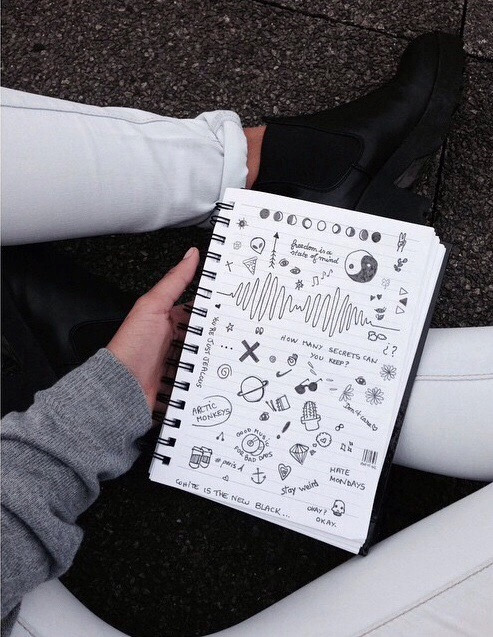 freedom is a
state of mind
HOW MANY SECRETS CAN
YOU KEEP?
¿?
YOU'RE JUST JEALOUS
ARCTIC
MONKEYS
Don't care
GOOD MUSIC
FOR BAD DAYS
#paris
HATE
MONDAYS
stay weird
WHITE IS THE NEW BLACK...
OKAY?
OKAY.